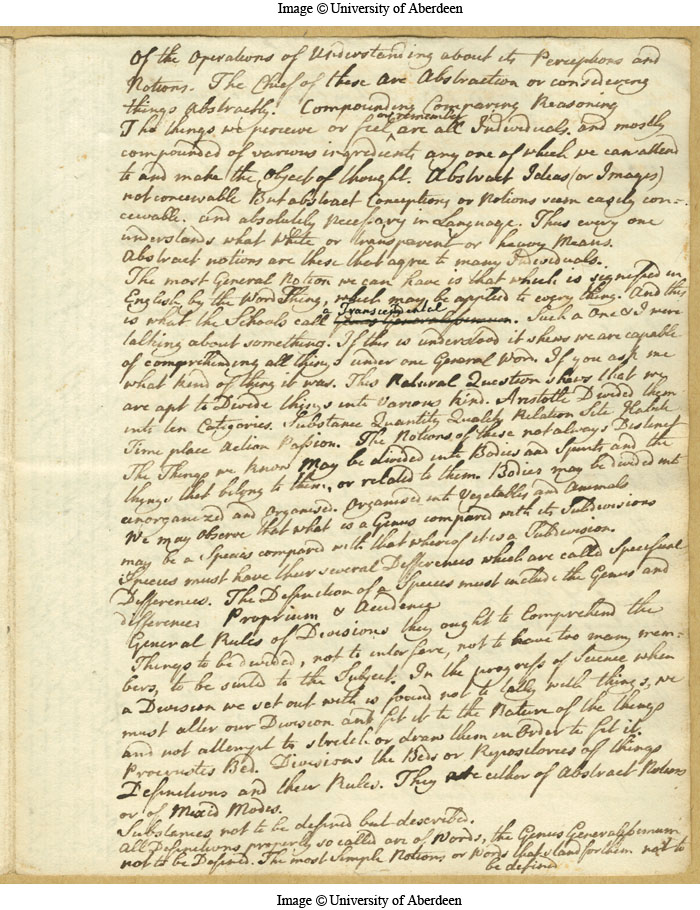 Image © University of Aberdeen
Of the Operations of Understanding about its Perceptions and
Notions. The Chief of these are Abstraction or considering
things abstractly. Compounding Comparing Reasoning
or remember
The things we perceive or feel, are all Individuals. and mostly
compounded of various ingredients any one of which we can attend
to and make the Object of thought. Abstract Ideas (or Images)
not conceivable But abstract Conceptions or Notions seem easily con-
ceivable. and absolutely Necessary in Language. Thus every one
understands what White or transparent or heavy Means.
Abstract notions are these that agree to many Individuals.
The most General Notion we can have is that which is signified in
English by the Word Thing, which may be applied to every thing. And this
a Transcendental
is what the Schools call Genus Generalissimum. Such a One & I were
talking about something. If this is understood it shews we are capable
of comprehending all things under one General Word. If you ask me
what kind of thing it was. This Natural Question shews that we
are apt to Divide things into Various kind. Aristotle Divided them
into ten Categories. Substance Quantity Quality Relation Site Habit
Time place Action Passion. The Notions of these not always Distinct
The Things we know May be divided into Bodies and Spirits and the
things that belong to them, or related to them. Bodies may be divided into
unorganized and Organised. Organised into Vegetables and Animals
We may Observe that what is a Genus compared with its Subdivisions
may be a Species compared with that whereof it is a Subdivision.
Species must have their several Differences which are called Specifical
Differences. The Definition of a Species must include the Genus and
difference Proprium & Accidens
General Rules of Divisions they ought to Comprehend the
Things to be divided, not to interfere, not to have too many mem-
bers, to be suited to the Subject. In the progress of Science when
a Division we set out with is found not to tally with things, we
must alter our Division and fit it to the Nature of the things
and not attempt to stretch or draw them in Order to fit it.
Procrustes Bed. Divisions the Beds or Repositories of things
Definitions and their Rules. They are either of Abstract Notions
or of Mixed Modes.
Substances not to be defined but described.
All Definitions properly so called are of Words, the Genus Generalissimum
not to be Defined. The most Simple Notions or Words that stand for them not to
be defined
Image © University of Aberdeen